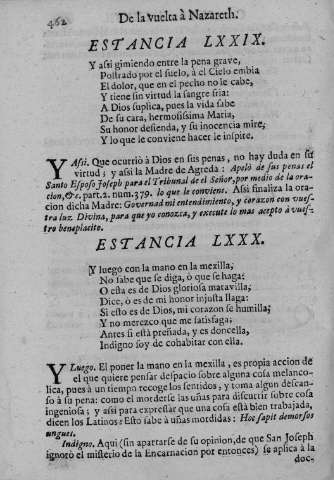 462
De la vuelta à Nazareth.
ESTANCIA LXXIX.
Y assi gimiendo entre la pena grave,
Postrado por el suelo, à el Cielo embia
El dolor, que en el pecho no le cabe,
Y tiene sin virtud la sangre fria:
A Dios suplica, pues la vida sabe
De su cara, hermosissima Maria,
Su honor defienda, y su inocencia mire,
Y lo que le conviene hacer le inspire.
Y Assi. Que ocurriò à Dios en sus penas, no hay duda en su
virtud; y assi la Madre de Agreda: Apelò de sus penas el
Santo Esposo Joseph para el Tribunal de el Señor, por medio de la ora-
cion, &c. part. 2. num. 379. lo que le conviene. Assi finaliza la ora
cion dicha Madre: Governad mi entendimiento, y corazon con vues-
tra luz Divina, para que yo conozca, y execute lo mas acepto à vues-
tro beneplacito.
ESTANCIA LXXX.
Y luego con la mano en la mexilla,
No sabe que se diga, ò que se haga:
O esta es de Dios gloriosa maravilla,
Dice, ò es de mi honor injusta llaga:
Si esto es de Dios, mi corazon se humilla;
Y no merezco que me satisfaga;
Antes si està preñada, y es doncella,
Indigno soy de cohabitar con ella.
Y Luego. El poner la mano en la mexilla, es propia accion de
el que quiere pensar despacio sobre alguna cosa melanco-
lica, pues à un tiempo recoge los sentidos, y toma algun descan-
so à su pena: como el morderse las uñas para discurrir sobre cosa
ingeniosa; y assi para expressar que una cosa està bien trabajada,
dicen los Latinos: Esto sabe à uñas mordidas: Hoc sapit demorsos
ungues.
Indigno. Aqui (sin apartarse de su opinion, de que San Joseph
ignorò el misterio de la Encarnacion por entonces) se aplica à la
doc-